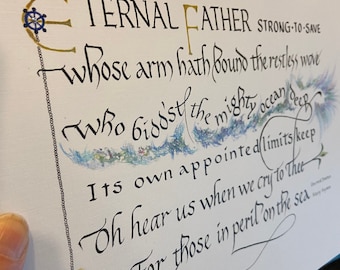 ETERNAL FATHER STRONG·TO·SAVE
whose arm hath bound the restless wave
Who bidd'st the mighty ocean deep
Its own appointed limits keep
Oh hear us when we cry to thee
For those in peril on the sea